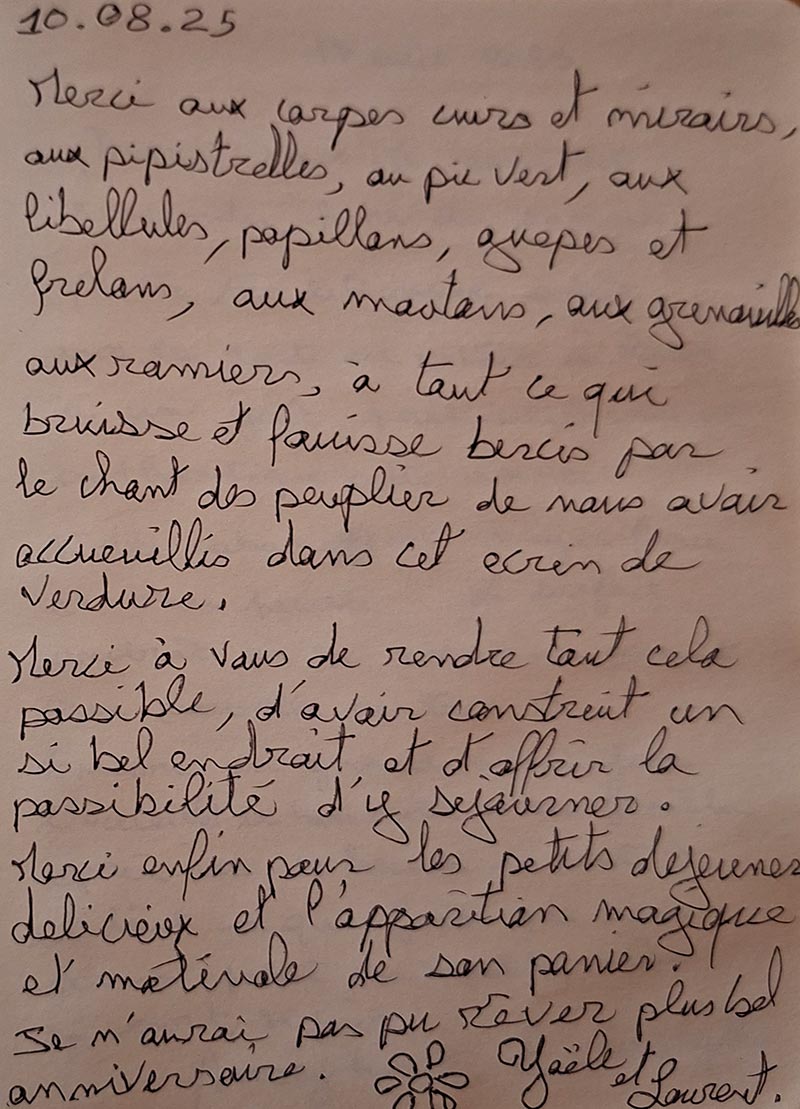 10.08.25
Merci aux carpes cuirs et miroirs,
aux pipistrelles, au pic vert, aux
libellules, papillons, guepes et
frelons, aux moutons, aux grenouilles
aux ramiers, à tout ce qui
bruisse et fouisse bercés par
le chant des peuplier de nous avoir
accueuillis dans cet ecrin de
verdure.
Merci à vous de rendre tout cela
possible, d'avoir construit un
si bel endroit et d'offrir la
possibilité d'y sejourner.
Merci enfin pour les petits dejeuner
delicieux et l'apparition magique
et matinale de son panier.
Je n'aurai pas pu rêver plus bel
anniversaire. Yaële et Laurent.